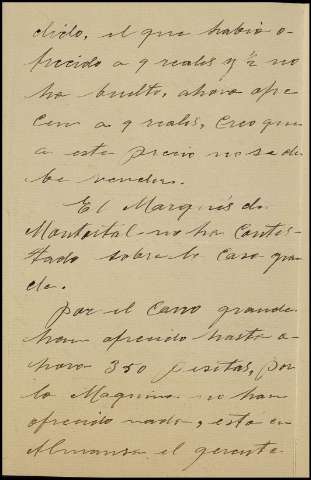 dido, el que habia o-
frecido a 9 reales y ½ no
ha buelto, ahora ofre
cen a 9 reales, creo que
a este precio no se de
be vender.
El Marqués de
Montortal no ha contes-
tado sobre la casa gran
de.
Por el carro grande
han ofrecido hasta a-
hora 350 pesetas, por
la Maquina no han
ofrecido nada, esta en
Almansa el gerente